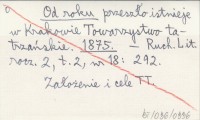 Od roku przeszło istnieje
w Krakowie Towarzystwo ta-
trzańskie. 1875. — Ruch. Lit
rocz. 2, t. 2, nr 18: 292.
Założenie i cele TT.